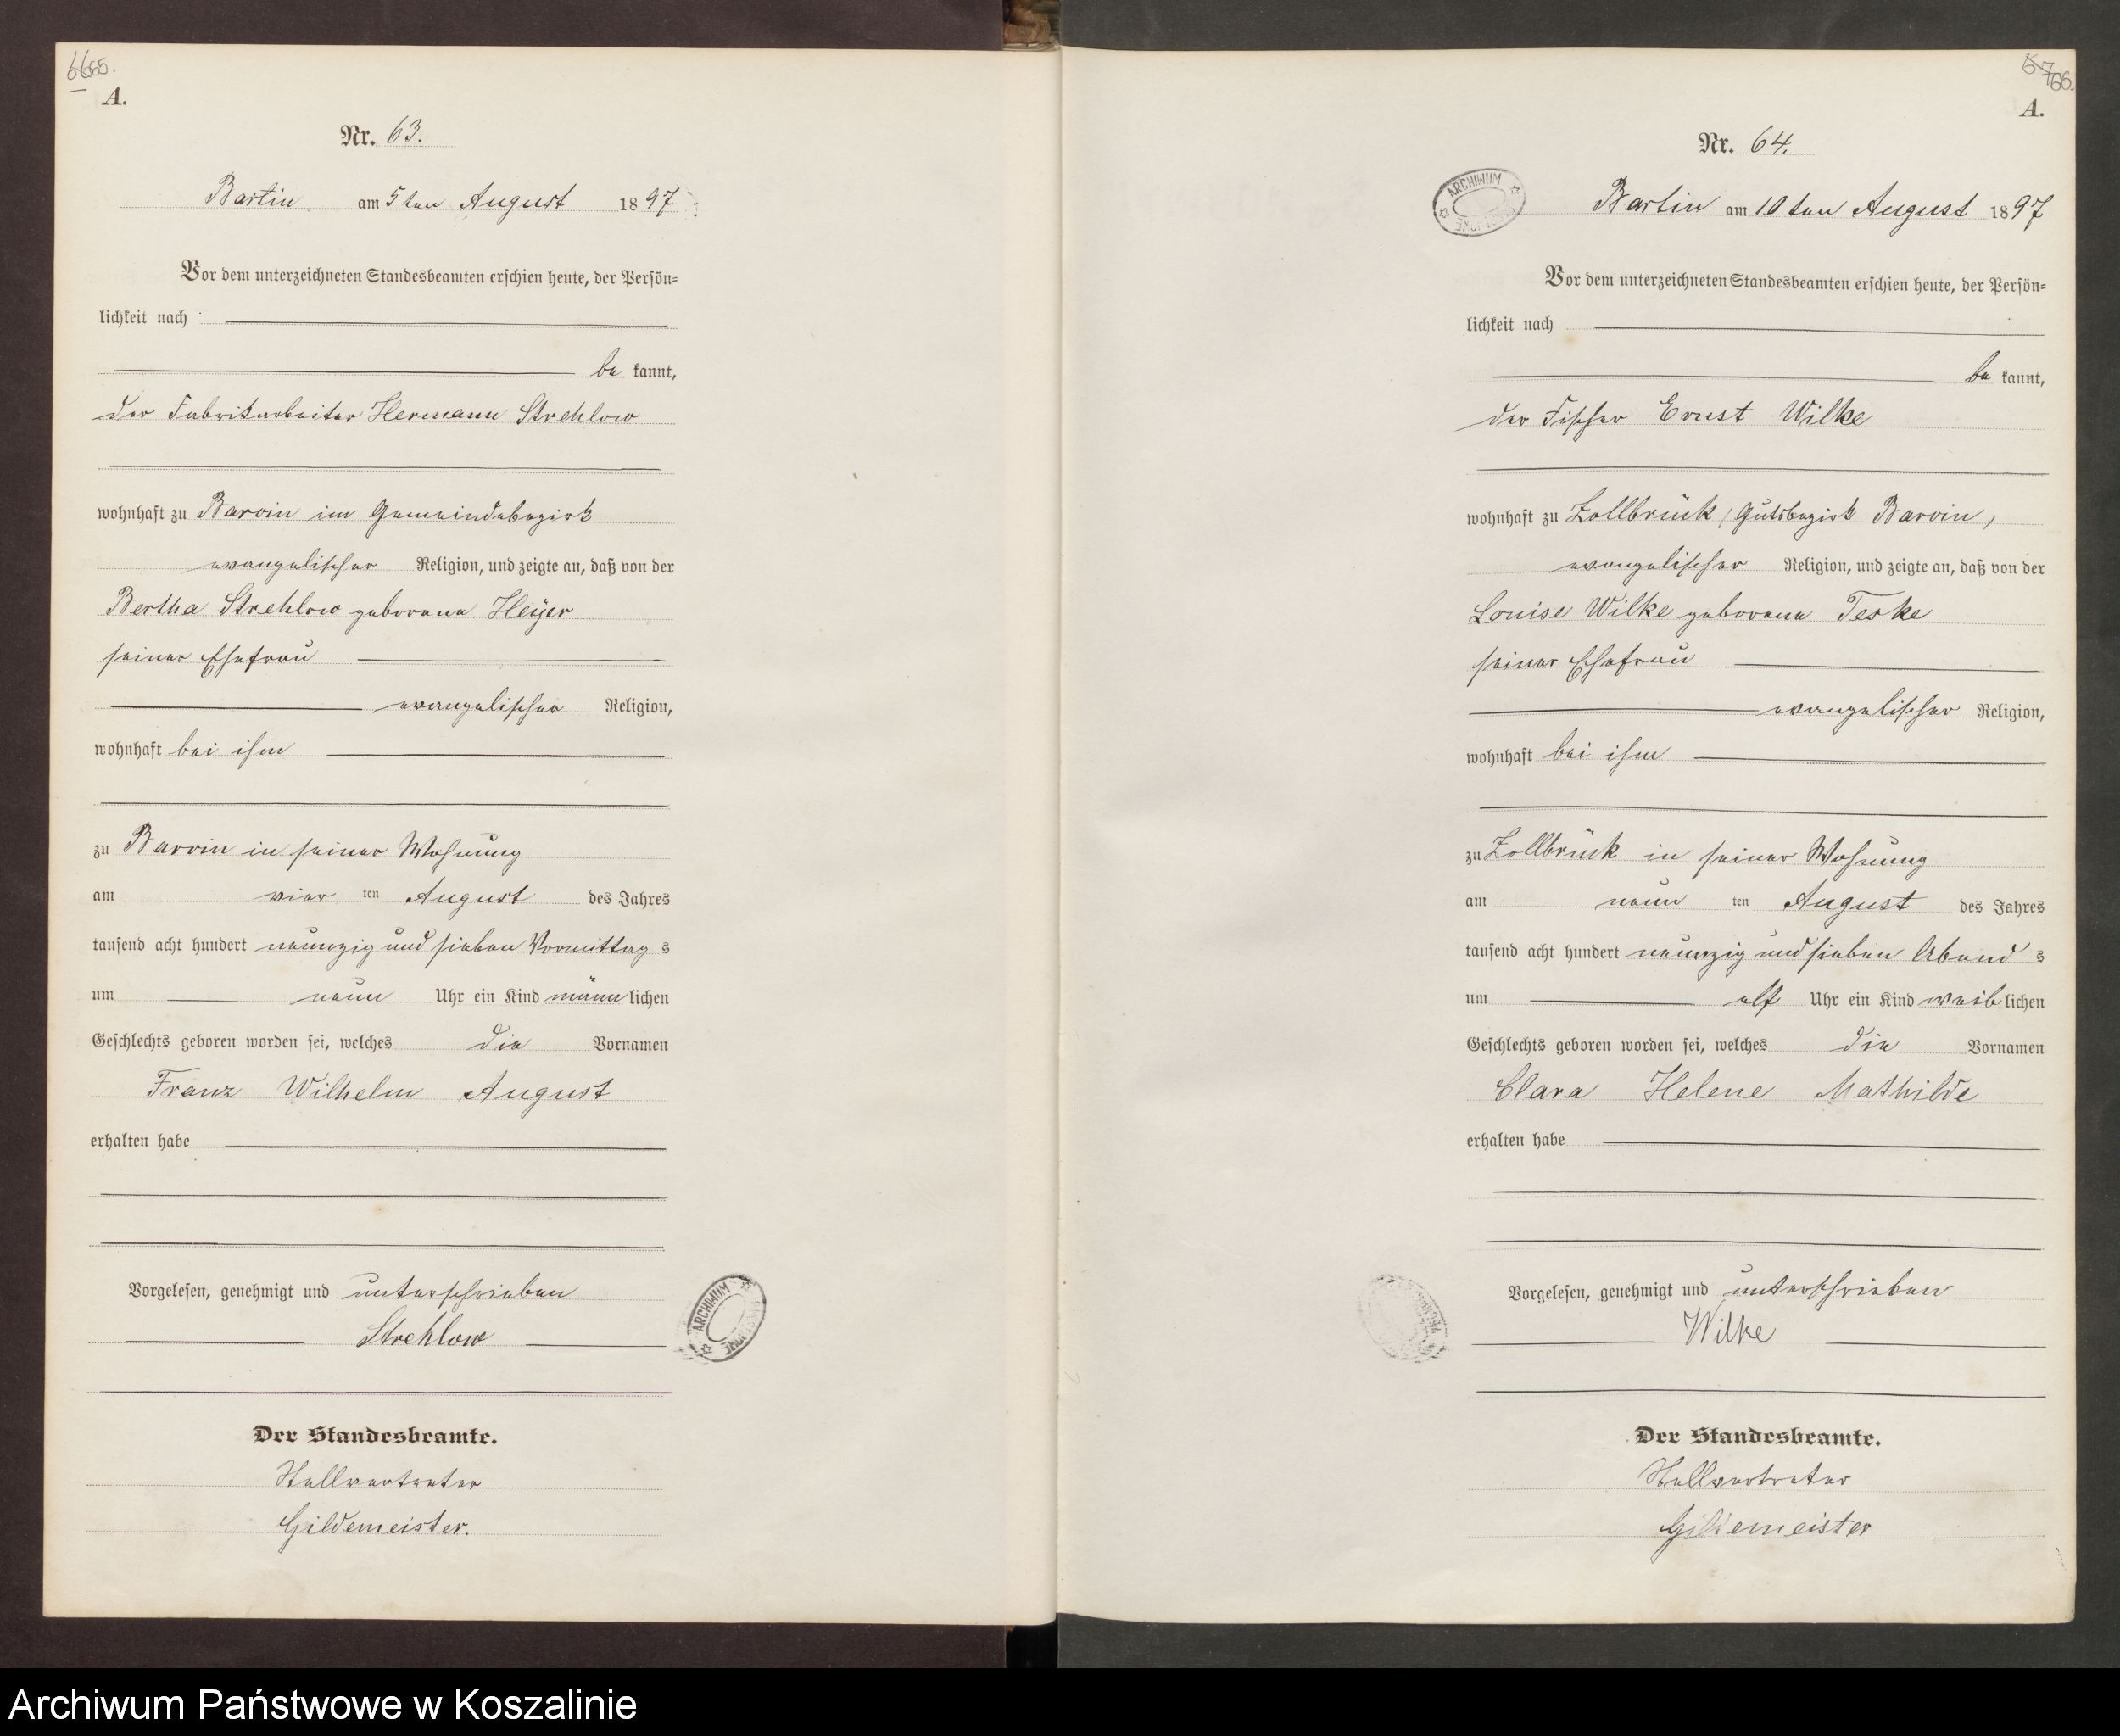 65.
A.
Nr. 63.
Bartin am 5ten August 1897
Vor dem unterzeichneten Standesbeamten erschien heute, der Persön=
lichkeit nach
be kannt,
der Fabrikarbeiter Hermann Strehlow
wohnhaft zu Barvin im Gemeindebezirk
evangelischer Religion, und zeigte an, daß von der
Bertha Strehlow geborene Heyer
seiner Ehefrau
evangelischer Religion,
wohnhaft bei ihm
zu Barvin in seiner Wohnung
am vier ten August des Jahres
tausend acht hundert neunzig und sieben Vormittag s
um neun Uhr ein Kind männ lichen
Geschlechts geboren worden sei, welches die Vornamen
Franz Wilhelm August
erhalten habe
Vorgelesen, genehmigt und unterschrieben
Strehlow
ARCHIWUM
Der Standesbeamte.
Stellvertreter
Gildemeister.
66.
A.
Nr. 64.
ARCHIWUM
Bartin am 10ten August 1897
Vor dem unterzeichneten Standesbeamten erschien heute, der Persön=
lichkeit nach
be kannt,
der Fischer Ernst Wilke
wohnhaft zu Zollbrück, Gutsbezirk Barvin,
evangelischer Religion, und zeigte an, daß von der
Louise Wilke geborene Teske
seiner Ehefrau
evangelischer Religion,
wohnhaft bei ihm
zu Zollbrück in seiner Wohnung
am neun ten August des Jahres
tausend acht hundert neunzig und sieben Abend s
um elf Uhr ein Kind weib lichen
Geschlechts geboren worden sei, welches die Vornamen
Clara Helene Mathilde
erhalten habe
Vorgelesen, genehmigt und unterschrieben
Wilke
Der Standesbeamte.
Stellvertreter
Gildemeister
Archiwum Państwowe w Koszalinie